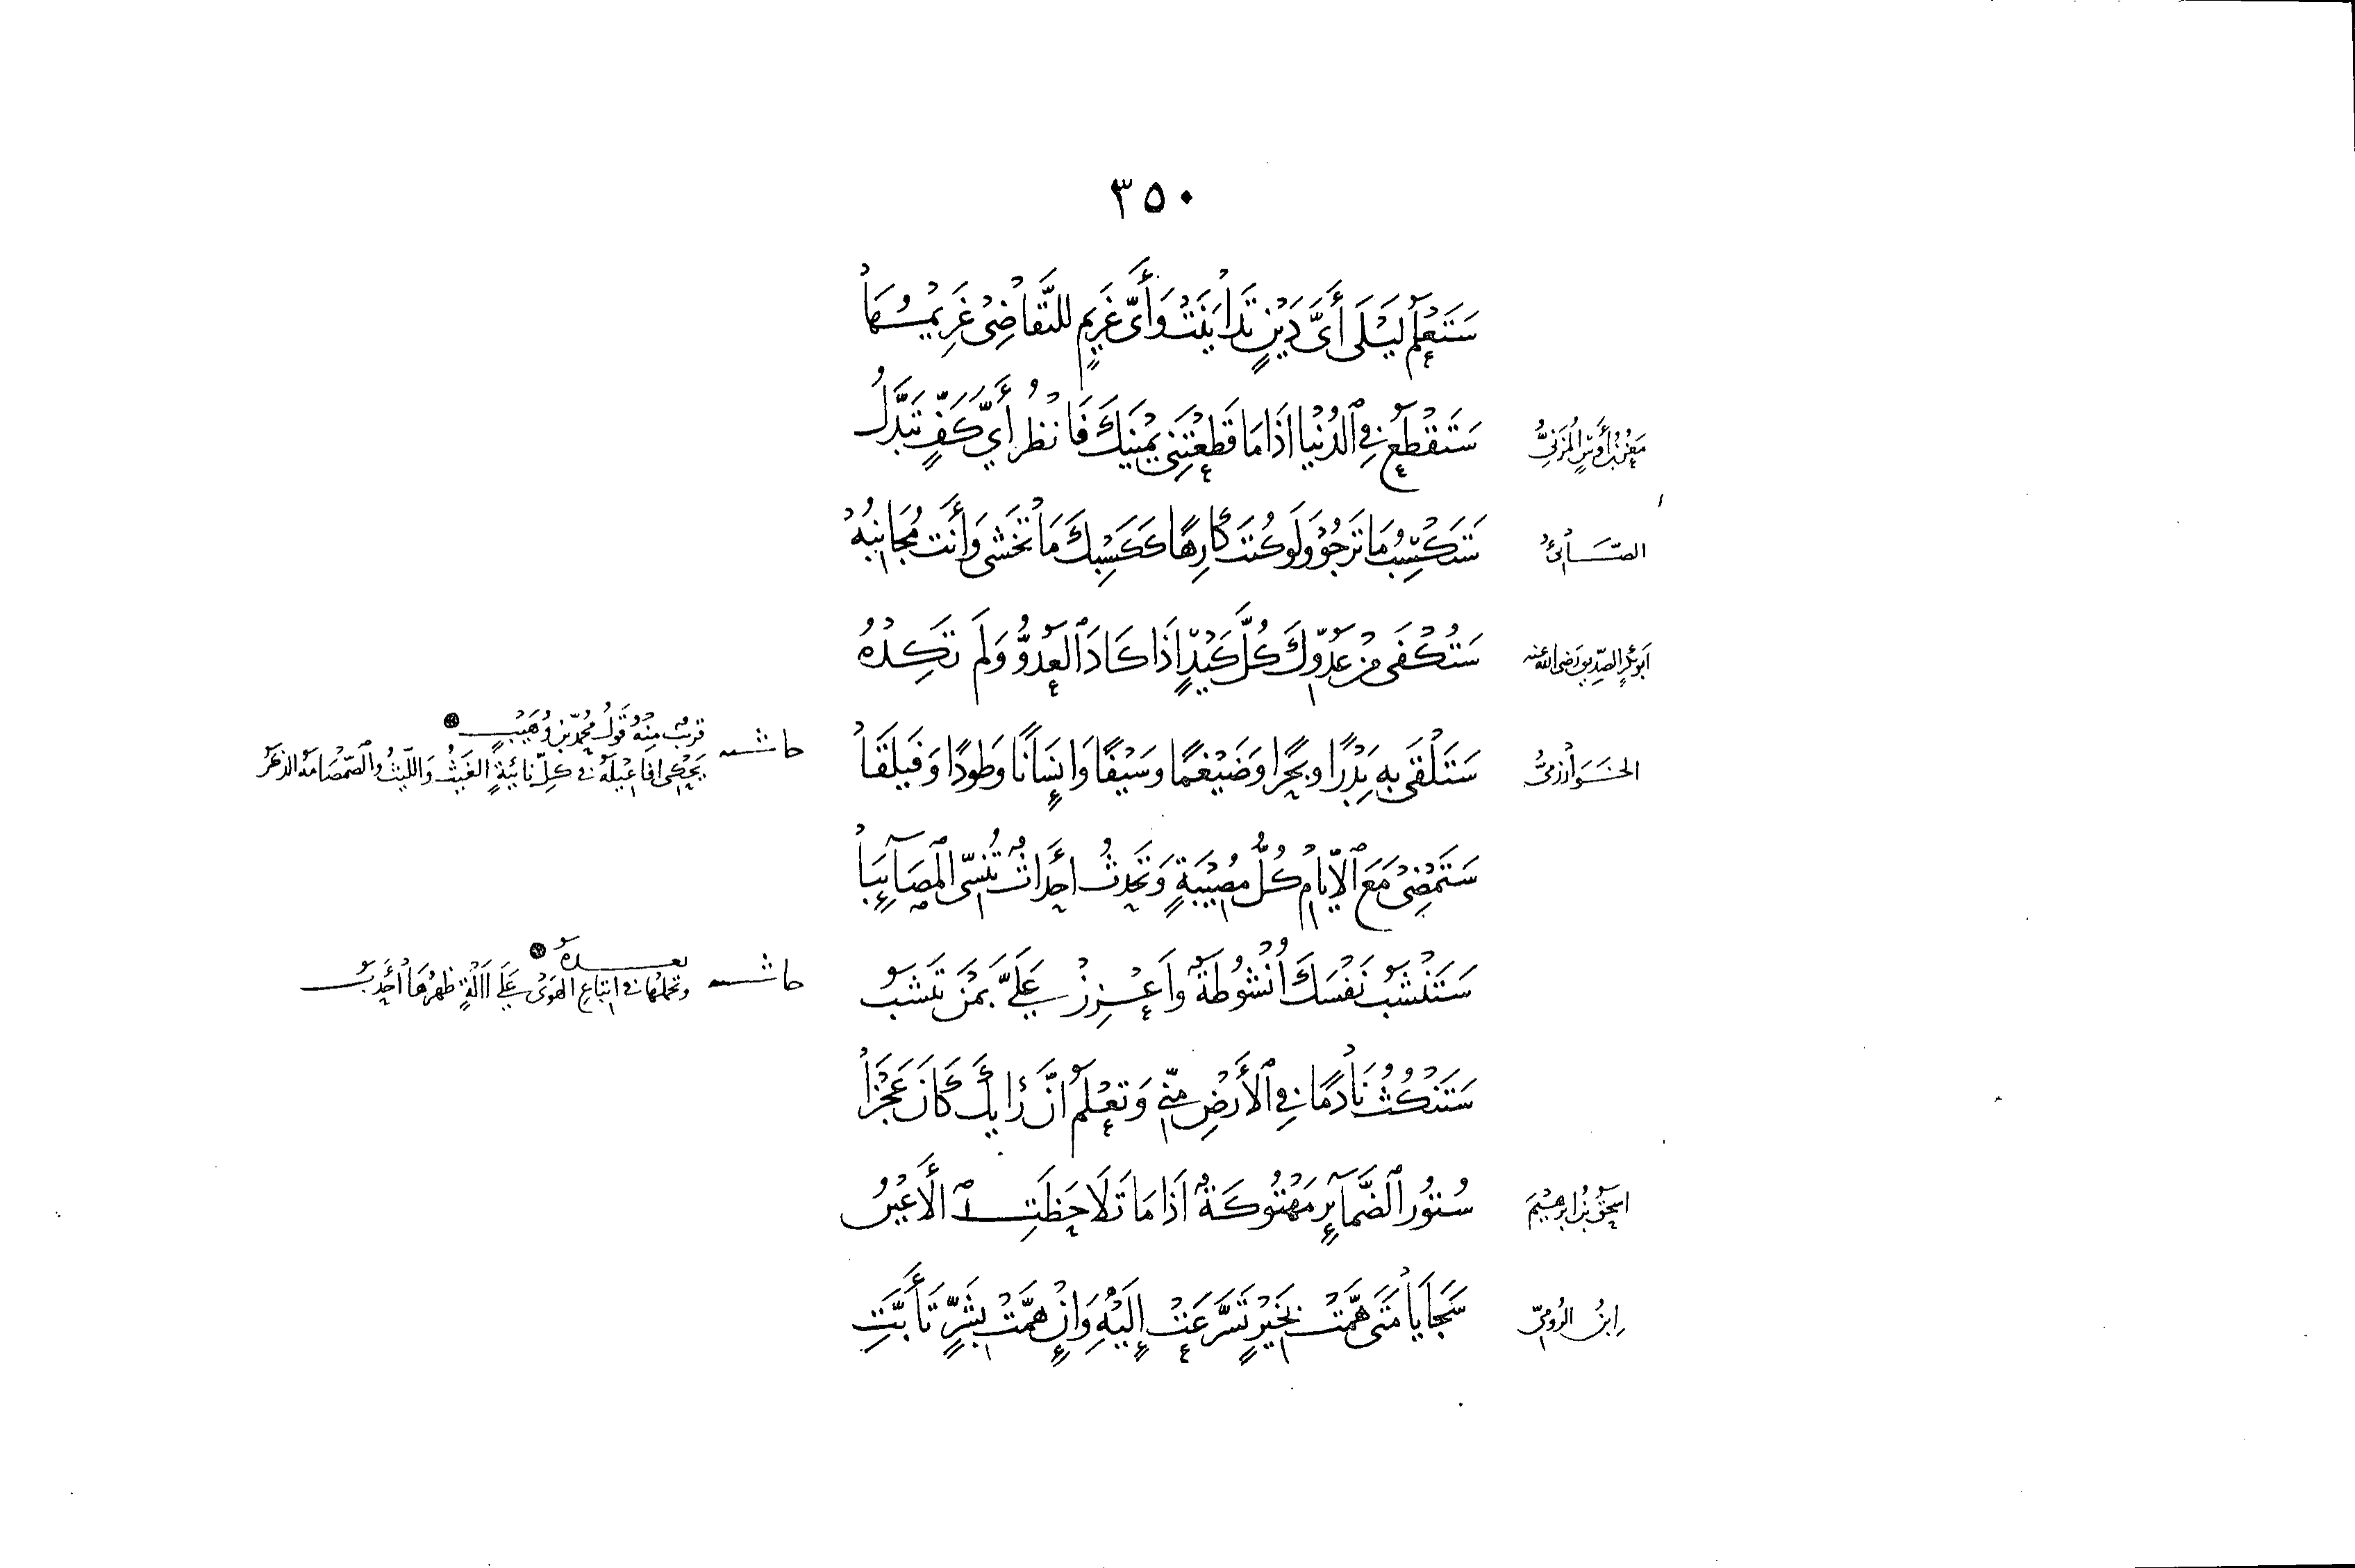 ٣٥٠
سَتَعْلَمُ لَيْلَى أَىَّ دَيْنٍ تَدَايَنَتْ وَأَىَّ غَرِيمٍ لِلتَّقَاضِىْ غَرِيْمُهَا
مَعْنُ بْنُ أَوْسٍ الْمُزَنِىُّ
سَتَقْطَعُ فِى الدُّنْيَا اِذَا مَا قَطَعْتَنِى يَمِيْنَكَ فَانْظُرْ أَىَّ كَفٍّ تَبَدَّلُ
الصَّابِئُ
سَتَكْسِبُ مَا تَرْجُوْ وَلَوْ كُنْتَ كَارِهًا كَكَسْبِكَ مَا تَخْشَى وَأَنْتَ مُجَانِبُهْ
اَبُو بَكْرٍ الصِّدِّيقُ رَضِىَ اللهُ عَنْهُ
سَتُكْفَى مِنْ عَدُوِّكَ كُلَّ كَيْدٍ اِذَا كَادَ الْعَدُوُّ وَلَمْ تَكِدْهُ
الخَوَارَزْمِىُّ
سَتَلْقَى بِهِ بَدْرًا وَبَحْرًا وَضَيْغَمًا وَسَيْفًا وَاِنْسَانًا وَطَوْدًا وَفَيْلَقَا
حاشية قريبٌ مِنْهُ قَوْلُ مُحَمَّدِ بْنِ وُهَيْبٍ
يَحْكِى افَاعِيْلَهُ فِى كُلِّ نَائِبَةٍ الغَيْثُ وَاللَّيْثُ وَالصَّمْصَامَةُ الذَّكَرُ
سَتَمْضِىْ مَعَ الْاَيَّامِ كُلُّ مُصِيْبَةٍ وَتَحْدِثُ احْدَاثٌ تُنَسِّى الْمَصَآئِبَا
سَتَنْشَبُ نَفْسَكَ اُنْشُوطَةً وَاَعْزِزْ عَلَىَّ بِمَنْ تَنْشَبُ
حاشية بعده
وتحملها فى اتباع الهوى على اَلَةٍ ظَهْرُهَا أَحْدَبُ
سَتَنْكُثُ نَادِمًا فِى الْأَرْضِ مِنِّى وَتَعْلَمُ اَنَّ رَأْيَكَ كَانَ عَجْزَا
اسْحَقُ بْنُ ابْرَهِيْمَ
سُتُوْرُ الضَّمَآئِرِ مَهْتُوْكَةٌ اِذَا مَا تَلَاحَظَتِ الْأَعْيُنُ
اِبْنُ الرُّوْمِىِّ
سَجَايَا مَتَى هَمَّتْ بِخَيْرٍ تَسَرَّعَتْ إِلَيْهِ وَاِنْ هَمَّتْ بِشَرٍّ تَأَبَّتِ